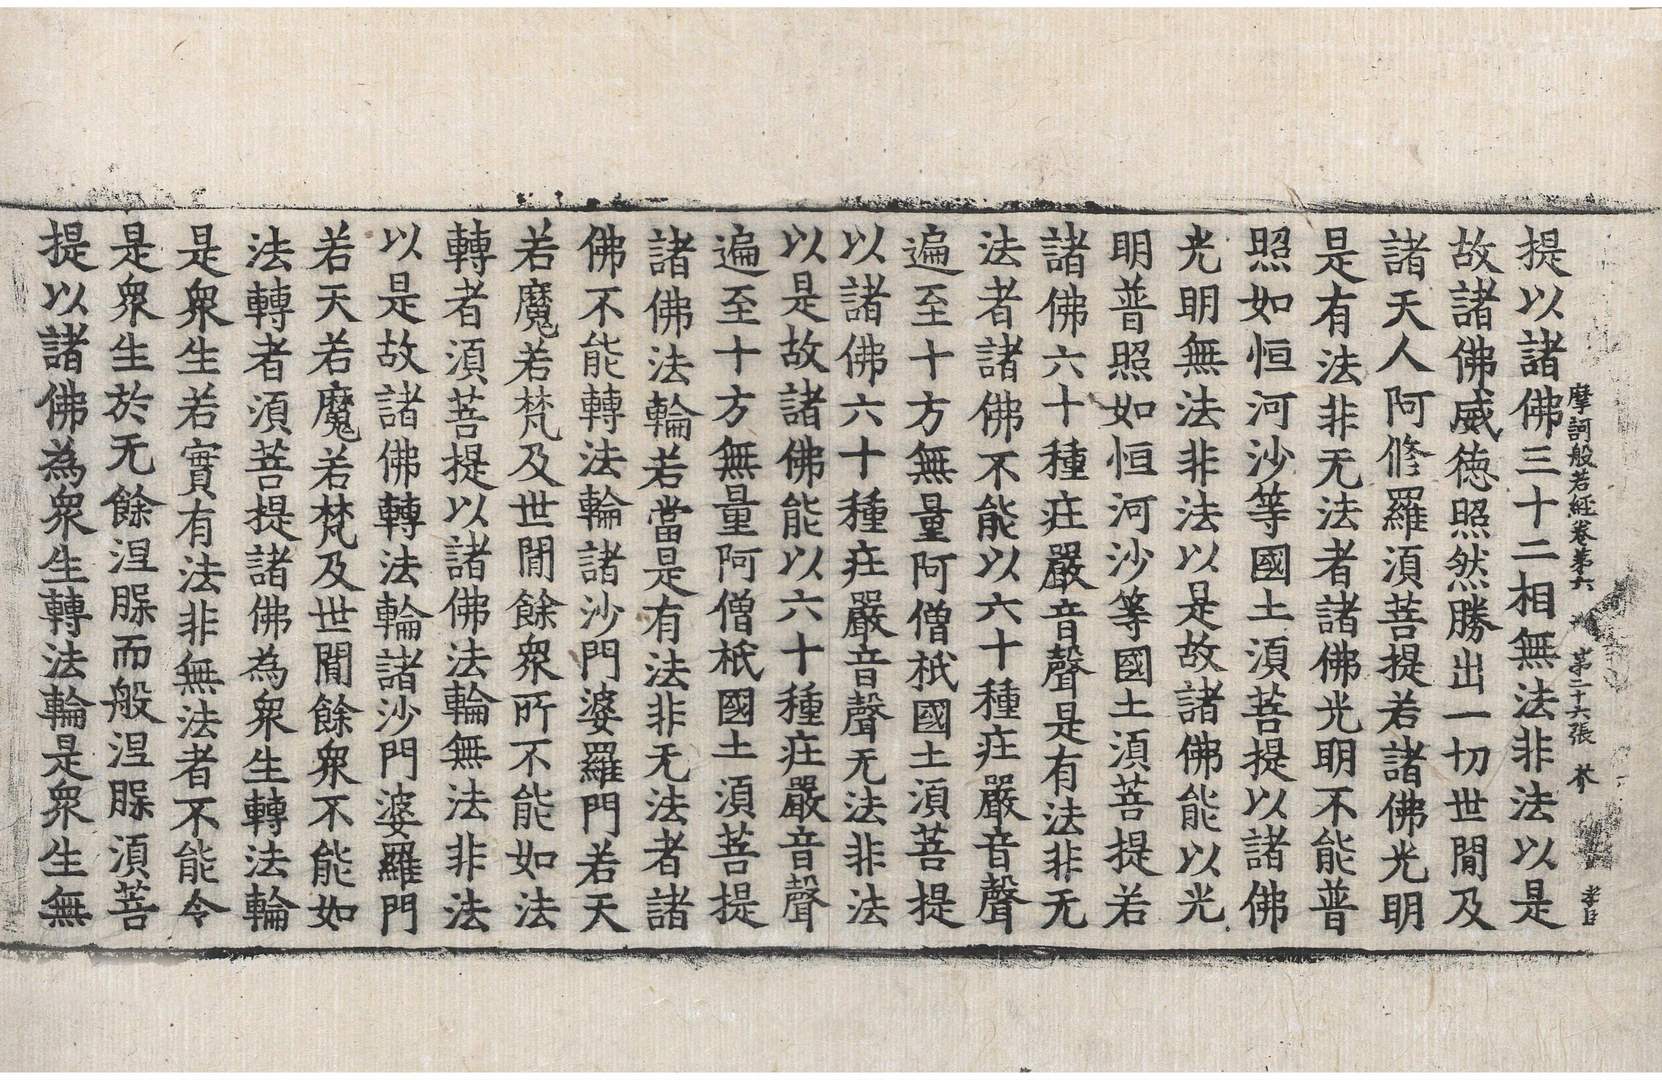 摩訶般若經卷苐六 第二十六張 芥 孝曰
提以諸佛三十二相無法非法以是
故諸佛威德照然勝出一切世閒及
諸天人阿修羅湏菩提若諸佛光明
是有法非无法者諸佛光明不能普
照如恒河沙等國土湏菩提以諸佛
光明無法非法以是故諸佛能以光
明普照如恒河沙等國土湏菩提若
諸佛六十種疘嚴音聲是有法非无
法者諸佛不能以六十種疘嚴音聲
遍至十方無量阿僧祇國土湏菩提
以諸佛六十種疘嚴音聲无法非法
以是故諸佛能以六十種疘嚴音聲
遍至十方無量阿僧祇國土湏菩提
諸佛法輪若當是有法非无法者諸
佛不能轉法輪諸沙門婆羅門若天
若魔若梵及世閒餘衆所不能如法
轉者湏菩提以諸佛法輪無法非法
以是故諸佛轉法輪諸沙門婆羅門
若天若魔若梵及世閒餘衆不能如
法轉者湏菩提諸佛為衆生轉法輪
是衆生若實有法非無法者不能令
是衆生於无餘涅脲而般涅脲湏菩
提以諸佛為衆生轉法輪是衆生無